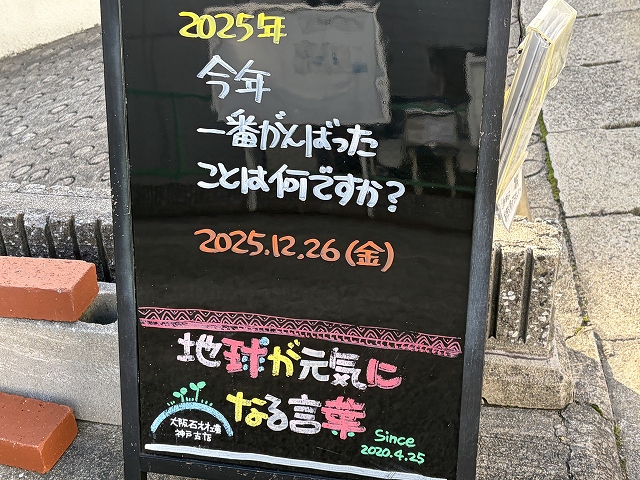 2025年
今年
一番がんばった
ことは何ですか?
2025.12.26(金)
地球が元気に
なる言葉
大阪石材工業
神戸店
Since
2020.4.25